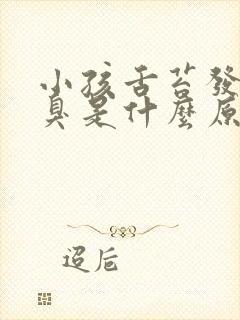 小孩舌苔發
臭是什麼原
迢卮